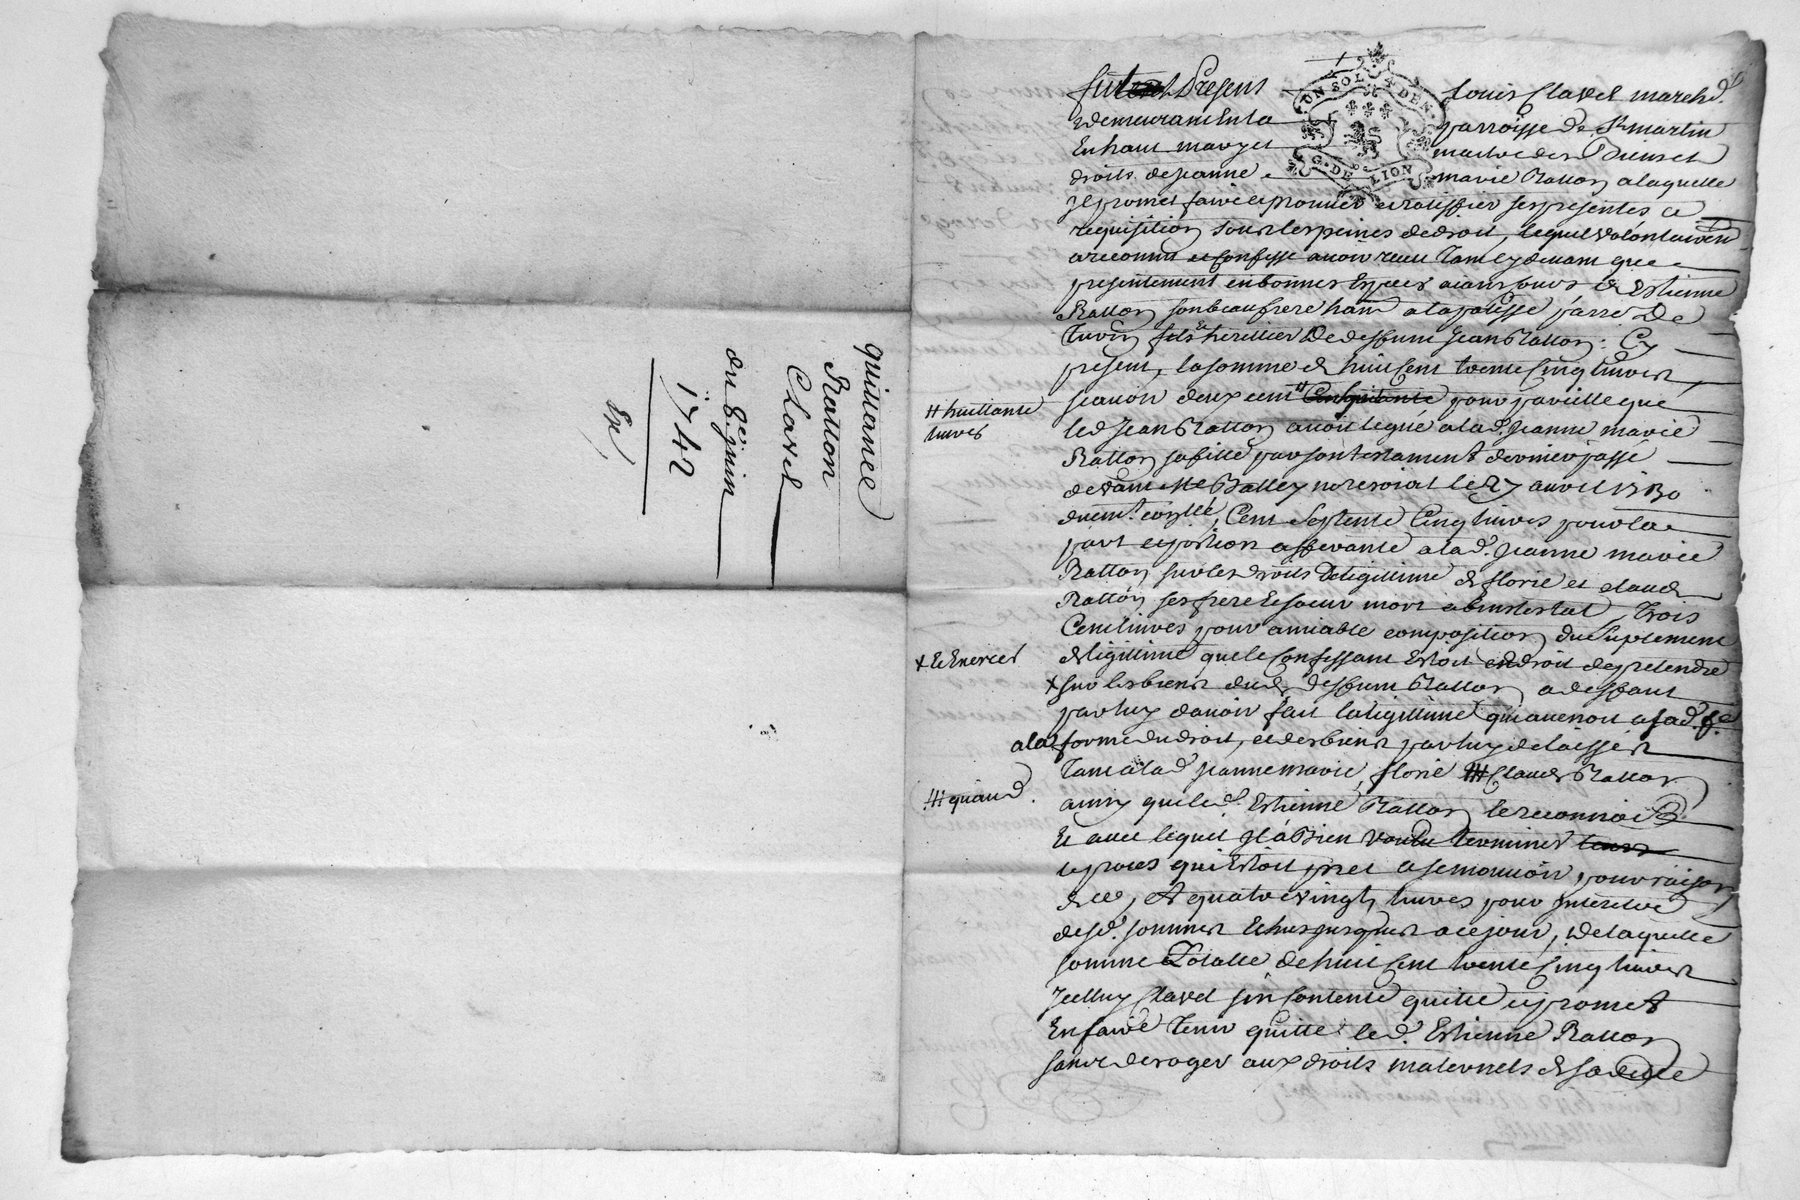 quittance
Ratton
Clavel
du 8e. juin
1742
Exp
UN SOL 4 DEN.
G. DE LION
fut Present Louis Clavel march.d
demeurant en la parroisse de St martin
En haut mary et maitre des Biens et
droits de jeanne marie Ratton a laquelle
Jl promet faire approuver et ratiffier ses presentes a
requisition sous les peines de droit, lequel volontairemt
a reconnu et confesse avoir receu tant cy devant que
presentement en bonnes Especes aians cours de Estienne
Ratton son beaufrere habt a la palisse parre de
fils et heritier de deffunt Jean Ratton Cy
present, la somme de huit Cent trente Cinq livres
scavoir deux cent # Cinquante pour pareille que
# huittante
livres
led Jean Ratton avoit legué a lad. Jeanne marie
Ratton sa fille par son testament dernier passé
devant Me Balley nore royal le 27 avril 1730
duemt. conllé, Cent Septente Cinq livres pour la
part et portion afferante a lad. jeanne marie
Ratton sur les droits de legittime de florie et claude
Ratton ses frere et soeur mort abinstestat, Trois
Cent livres pour amiable composition du Suplement
de legittime que le Confessant Estoit en droit de pretendre
+ Et Exercer
+ sur les biens dud deffunt Ratton a deffaut
par luy d'avoir fait la legittime qui avenoit a sad. fe
a la forme du droit, et des biens par luy delaissés
tant a lad jeanne marie, florie # Claude Ratton
# quaud.
ainsy que led. Estienne Ratton le reconnoit
Et avec lequel Jl a Bien voulu terminer
le proces qui Estoit pret a semouvoir pour raison
de ce, Et quatre vingt livres pour Jnterests
desd. sommes Echus jusques a ce jour, de laquelle
somme Totalle de huit Cent trente Cinq livres
Jcelluy Clavel s'en Contente quitte et promet
En faire tenir quitte led. Estienne Ratton
sans deroger aux droits maternels de sade